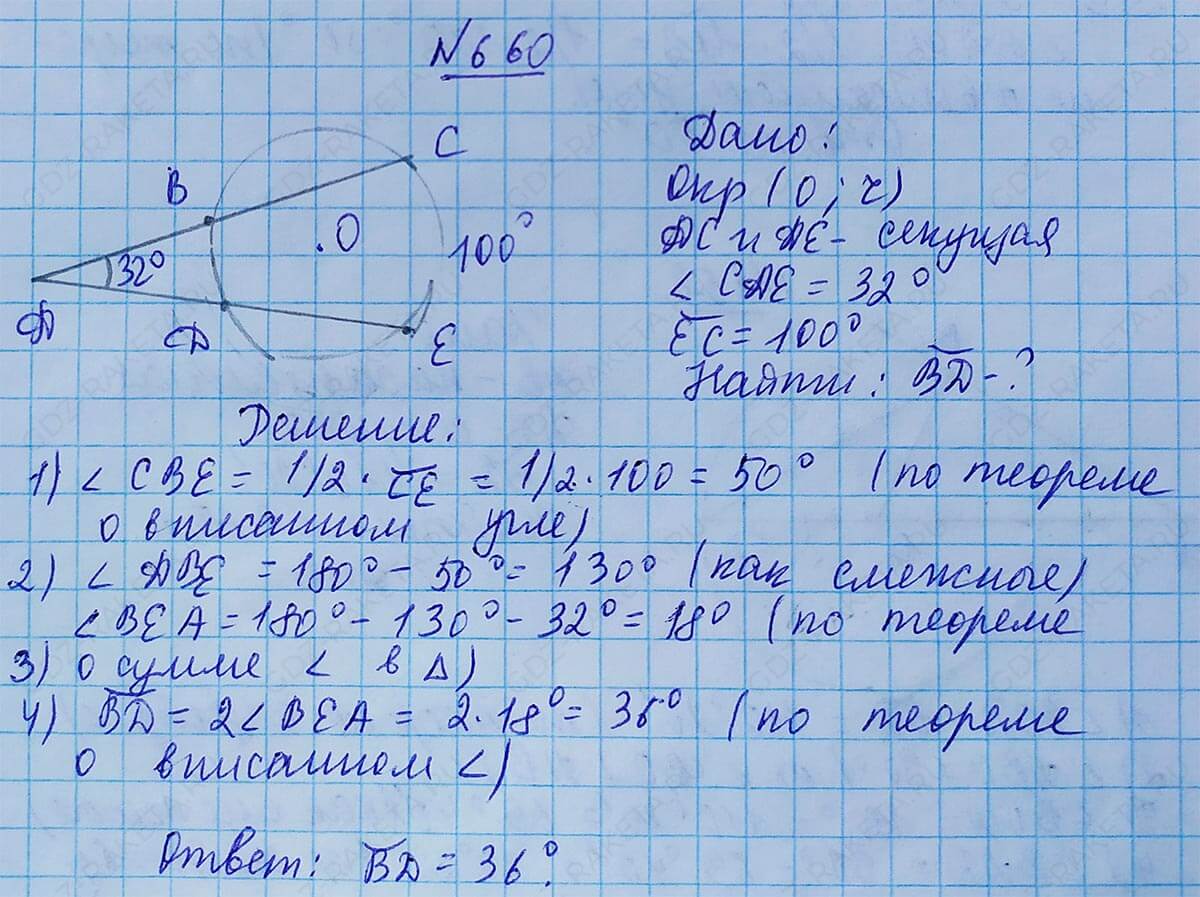 N660
C
B
.O
100°
32°
A
D
E
Дано:
Окр (O; r)
AC и AE - секущая
< CAE = 32°
EC = 100°
Найти: BD - ?
Решение:
1) < CBE = 1/2 · CE = 1/2 · 100 = 50° (по теореме
о вписанном угле)
2) < ABE = 180° - 50° = 130° (как смежные)
<BEA = 180° - 130° - 32° = 18° (по теореме
3) о сумме < в Δ)
4) BD = 2<BEA = 2·18° = 36° (по теореме
о вписанном <)
Ответ: BD = 36°.